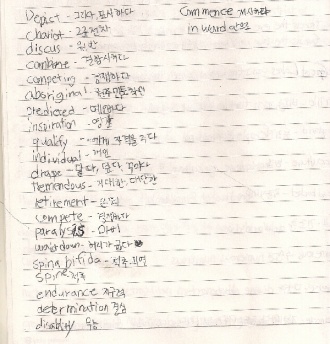 Depict - 그리다, 묘사하다
Chariot - 2륜전차
discus - 원반
combine - 결합시키다
competing - 경쟁하다
aboriginal
predicted -
inspiration - 영감
qualify - 자격을 주다
individual - 개인
drape -
tremendous - 거대한, 대단한
retirement - 은퇴
compete - 경쟁하다
paralysis - 마비
waist down - 허리
spina bifida - 척추
Spine 척추
endurance 지구력
determination 결심
disability
Commence 시작하다
inward